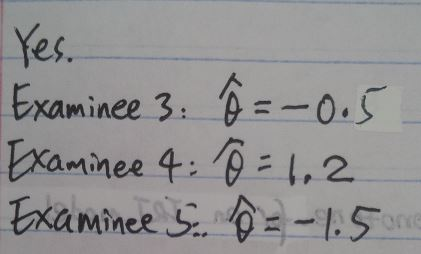 Yes.
Examinee 3: θ̂ = -0.5
Examinee 4: θ̂ = 1.2
Examinee 5: θ̂ = -1.5